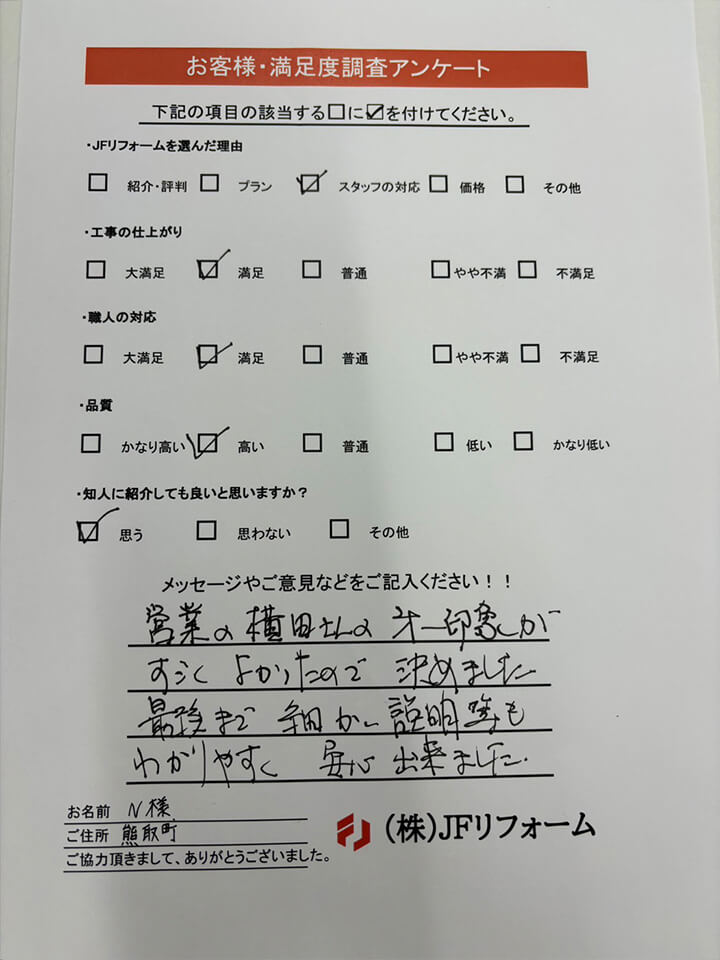 お客様・満足度調査アンケート
下記の項目の該当する□に☑を付けてください。
・JFリフォームを選んだ理由
□ 紹介・評判 □ プラン ☑ スタッフの対応 □ 価格 □ その他
・工事の仕上がり
□ 大満足 ☑ 満足 □ 普通 □ やや不満 □ 不満足
・職人の対応
□ 大満足 ☑ 満足 □ 普通 □ やや不満 □ 不満足
・品質
□ かなり高い ☑ 高い □ 普通 □ 低い □ かなり低い
・知人に紹介しても良いと思いますか？
☑ 思う □ 思わない □ その他
メッセージやご意見などをご記入ください！！
営業の横田さんの 才一印象が
すごく よかったので 決めました
最後まで 細かい説明等も
わかりやすく 安心 出来ました.
お名前 N様
ご住所 熊取町
ご協力頂きまして、ありがとうございました。
(株)JFリフォーム